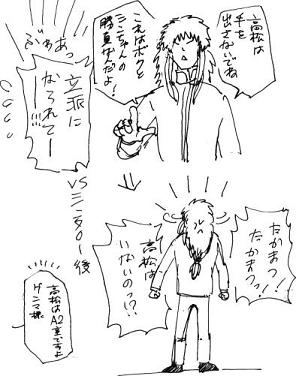 高松は
手を
出さないでね
これはボクと
シンちゃんの
勝負なんだよ!
ぶわあっ
立派に
なられて
ー!!!
VSシンタロー後
たかまつっ!!
たかまつっ!
高松は
いないのっ!?
高松はA2室ですよ
グンマ様。